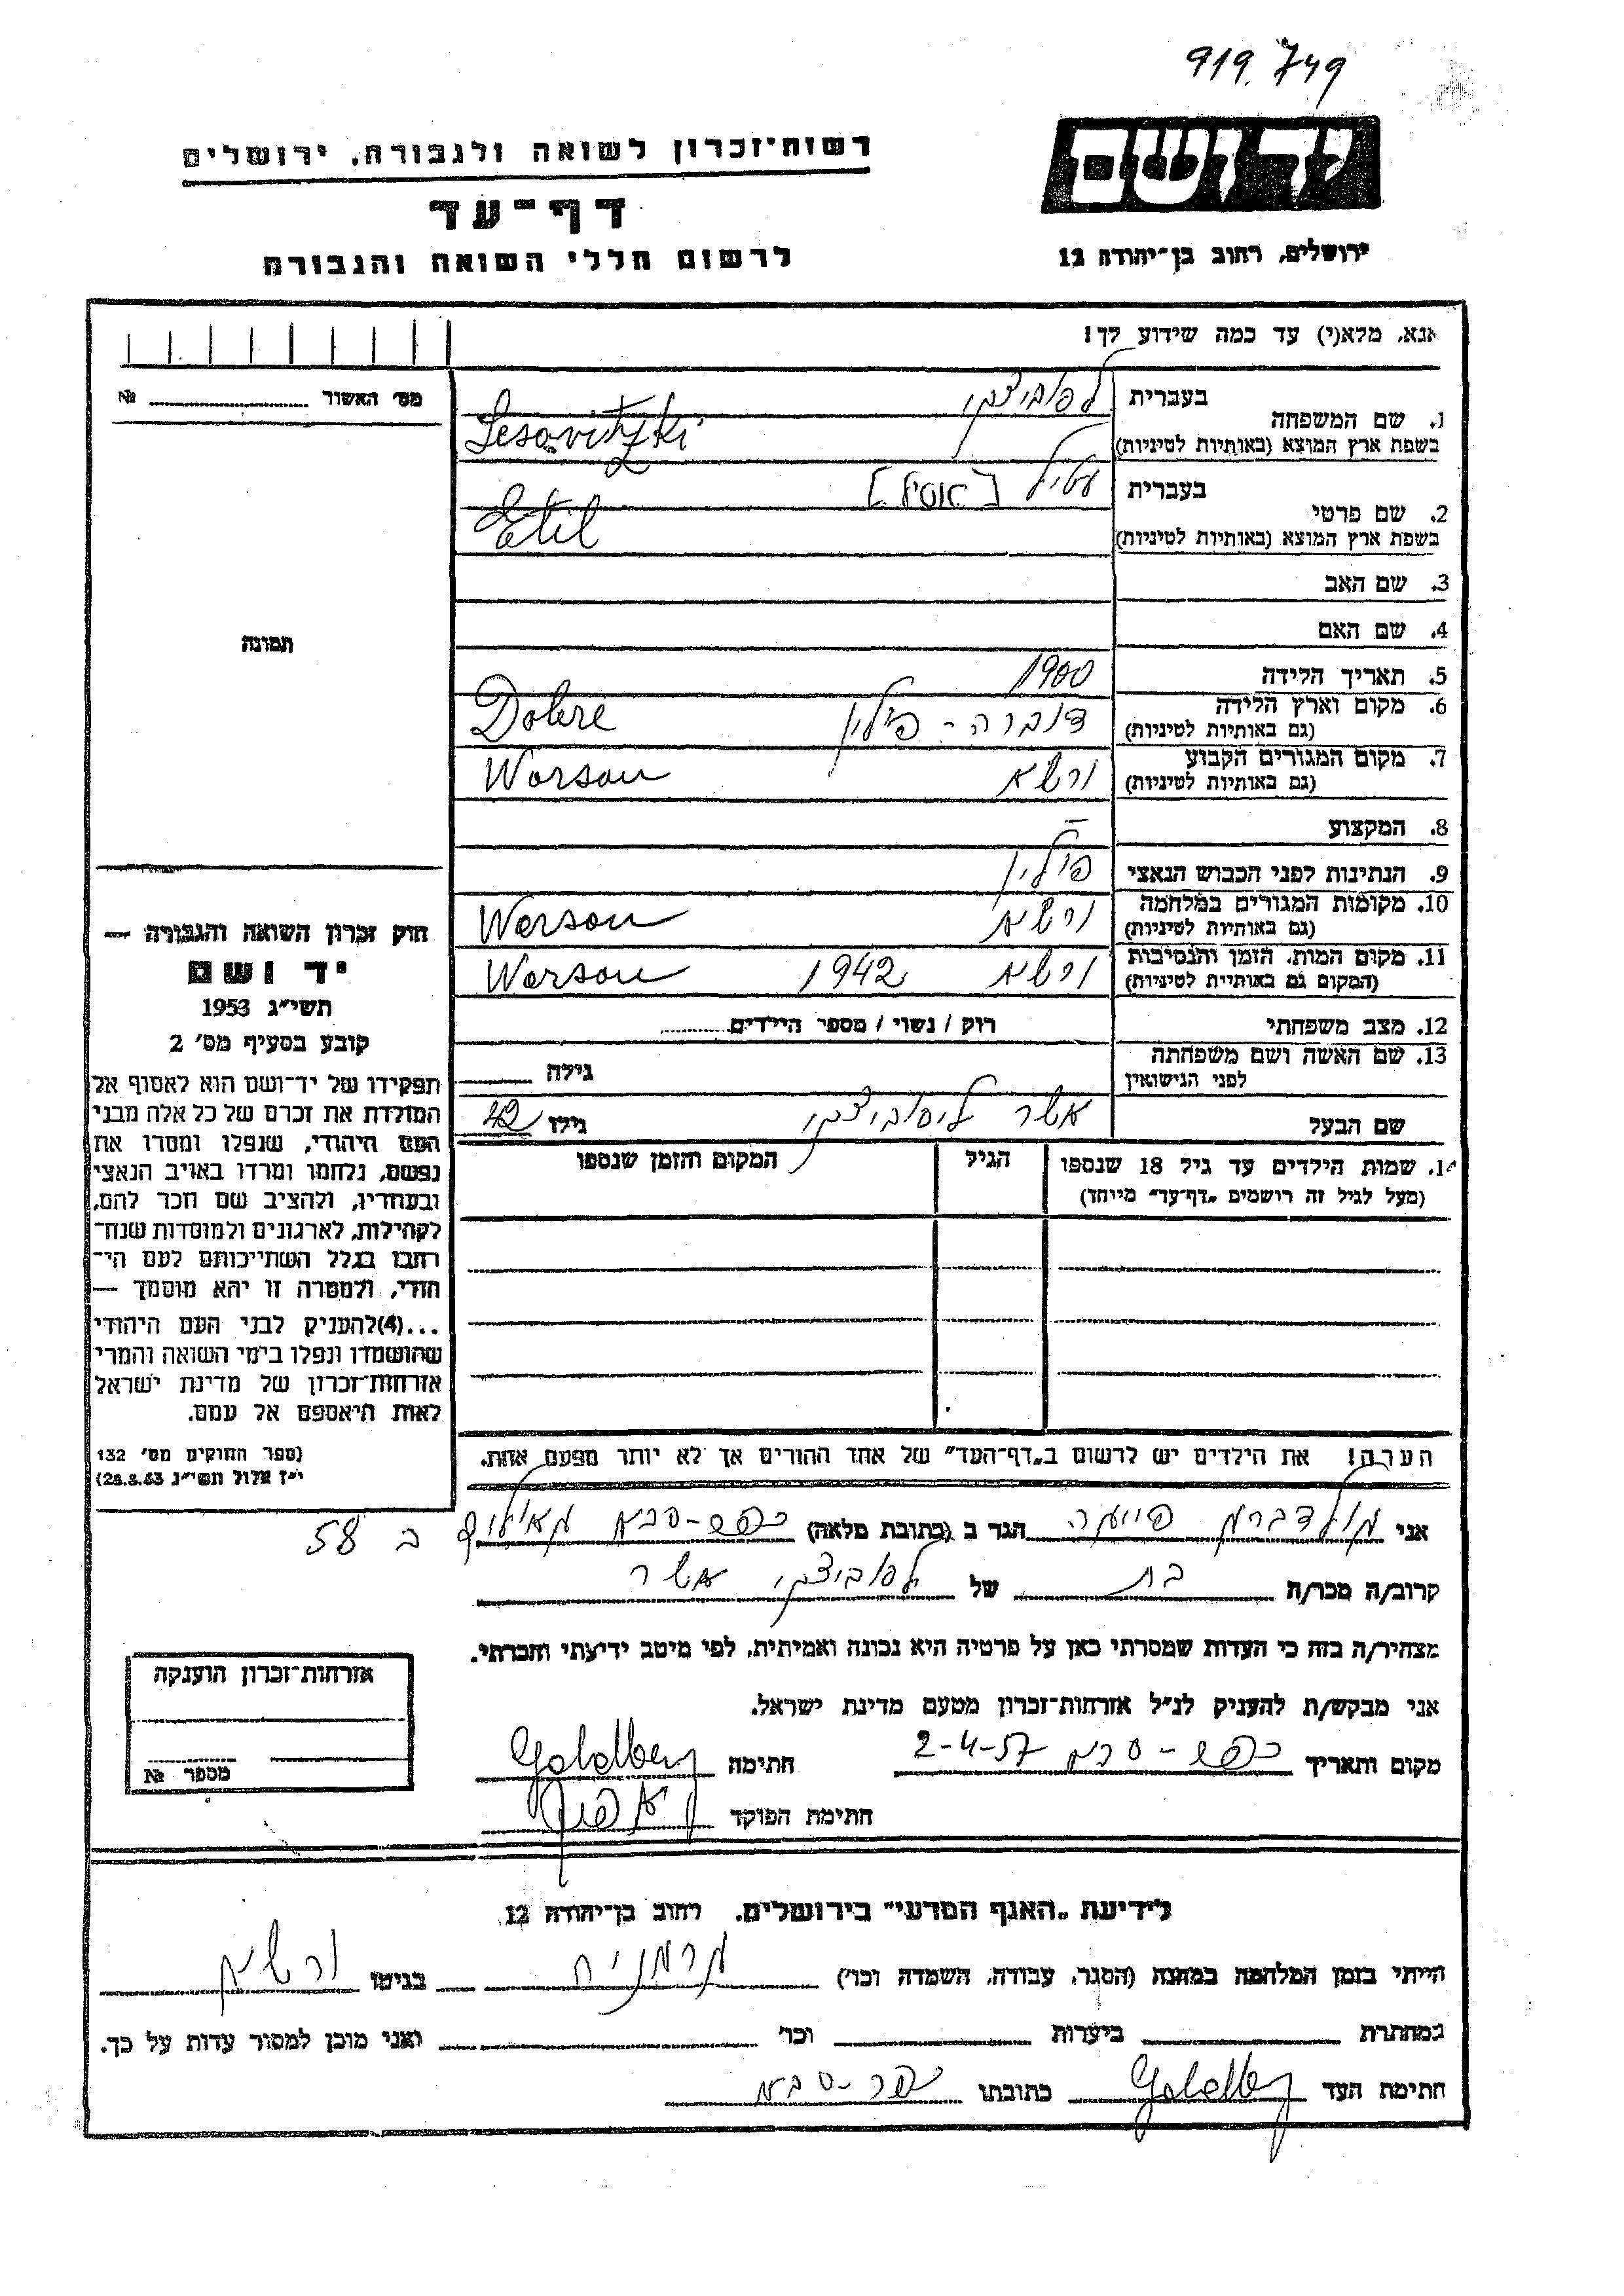 919.749
יד ושם
רשות-זכרון לשואה ולגבורה, ירושלים
דף-עד
לרשום חללי השואה והגבורה
ירושלים, רחוב בן-יהודה 12
אנא, מלא(י) עד כמה שידוע לך!
מס' האשור № 
1. שם המשפחה
בעברית לסוביצקי
בשפת ארץ המוצא (באותיות לטיניות) Lesovitzki
2. שם פרטי
בעברית עטיל [אטיל]
בשפת ארץ המוצא (באותיות לטיניות) Etil
3. שם האב
4. שם האם
תמונה
5. תאריך הלידה 1900
6. מקום וארץ הלידה דוברה - פולין Dobre
(גם באותיות לטיניות)
7. מקום המגורים הקבוע ורשא Worsou
(גם באותיות לטיניות)
8. המקצוע —
9. הנתינות לפני הכבוש הנאצי פולין
10. מקומות המגורים במלחמה ורשא Worsou
(גם באותיות לטיניות)
11. מקום המות, הזמן והנסיבות ורשא 1942 Worsou
(המקום גם באותיות לטיניות)
12. מצב משפחתי רוק / נשוי / מספר הילדים
13. שם האשה ושם משפחתה
לפני הנישואין גילה
שם הבעל אשר ליסוביצקי גילו 42
14. שמות הילדים עד גיל 18 שנספו הגיל המקום והזמן שנספו
(מעל לגיל זה רושמים „דף-עד" מייוחד)
חוק זכרון השואה והגבורה —
יד ושם
תשי"ג 1953
קובע בסעיף מס' 2
תפקידו של יד-ושם הוא לאסוף אל
המולדת את זכרם של כל אלה מבני
העם היהודי, שנפלו ומסרו את
נפשם, נלחמו ומרדו באויב הנאצי
ובעוזריו, ולהציב שם וזכר להם,
לקהילות, לארגונים ולמוסדות שנח-
רבו בגלל השתייכותם לעם הי-
הודי, ולמטרה זו יהא מוסמך —
...(4)להעניק לבני העם היהודי
שהושמדו ונפלו בימי השואה והמרי
אזרחות-זכרון של מדינת ישראל
לאות היאספם אל עמם.
(ספר החוקים מס' 132
י"ז אלול תשי"ג 28.8.53)
הערה! את הילדים יש לרשום ב„דף-העד" של אחד ההורים אך לא יותר מפעם אחת.
אני גולדברג הגר ב (כתובת מלאה) כפר-סבא ב 58
קרוב/ה מכר/ה בת של לסוביצקי אשר
מצהיר/ה בזה כי העדות שמסרתי כאן על פרטיה היא נכונה ואמיתית, לפי מיטב ידיעתי והכרתי.
אני מבקש/ת להעניק לנ"ל אזרחות-זכרון מטעם מדינת ישראל.
מקום ותאריך כפר-סבא 2-4-57 חתימה Goldberg
חתימת הפוקד
אזרחות-זכרון הוענקה
מספר №
לידיעת „האגף המדעי" בירושלים, רחוב בן-יהודה 12
הייתי בזמן המלחמה במחנה (הסגר, עבודה, השמדה וכו') גרמניה בגיטו ורשא
במחתרת ביערות וכו' ואני מוכן למסור עדות על כך.
חתימת העד Goldberg כתובתו כפר-סבא